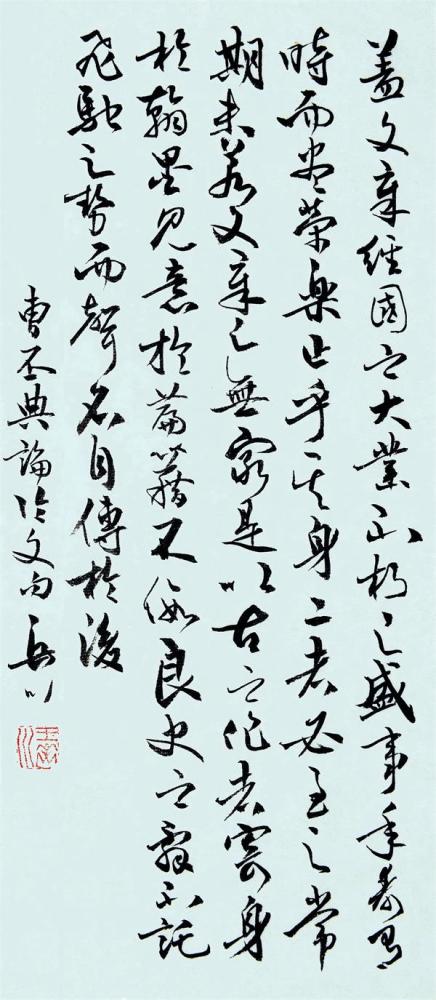 蓋文章經國之大業不朽之盛事年壽有
時而盡榮樂止乎其身二者必至之常
期未若文章之無窮是以古之作者寄身
於翰墨見意於篇籍不假良史之辭不託
飛馳之勢而聲名自傳於後
曹丕典論論文句 岳川